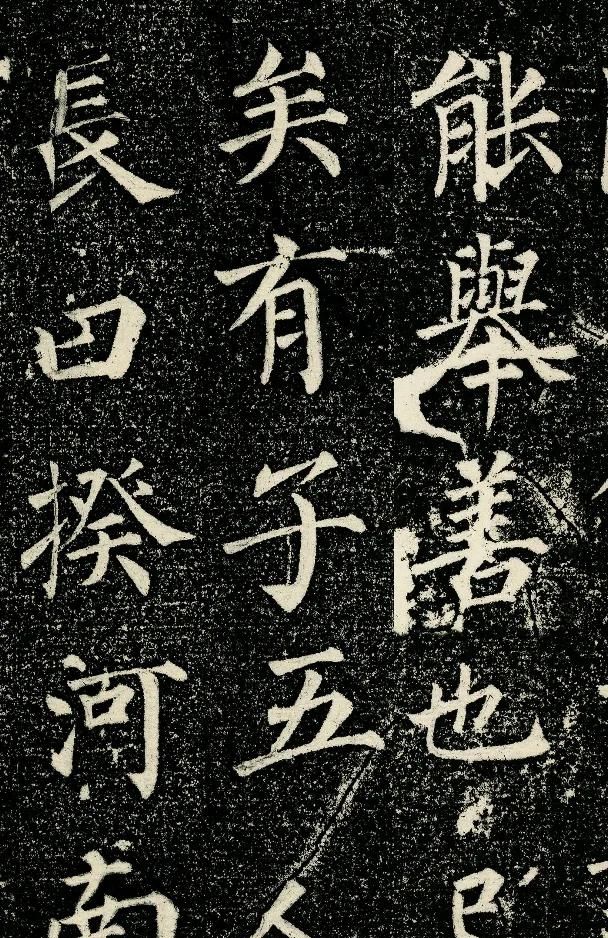 能舉善也已
矣有子五人
長曰揆河南